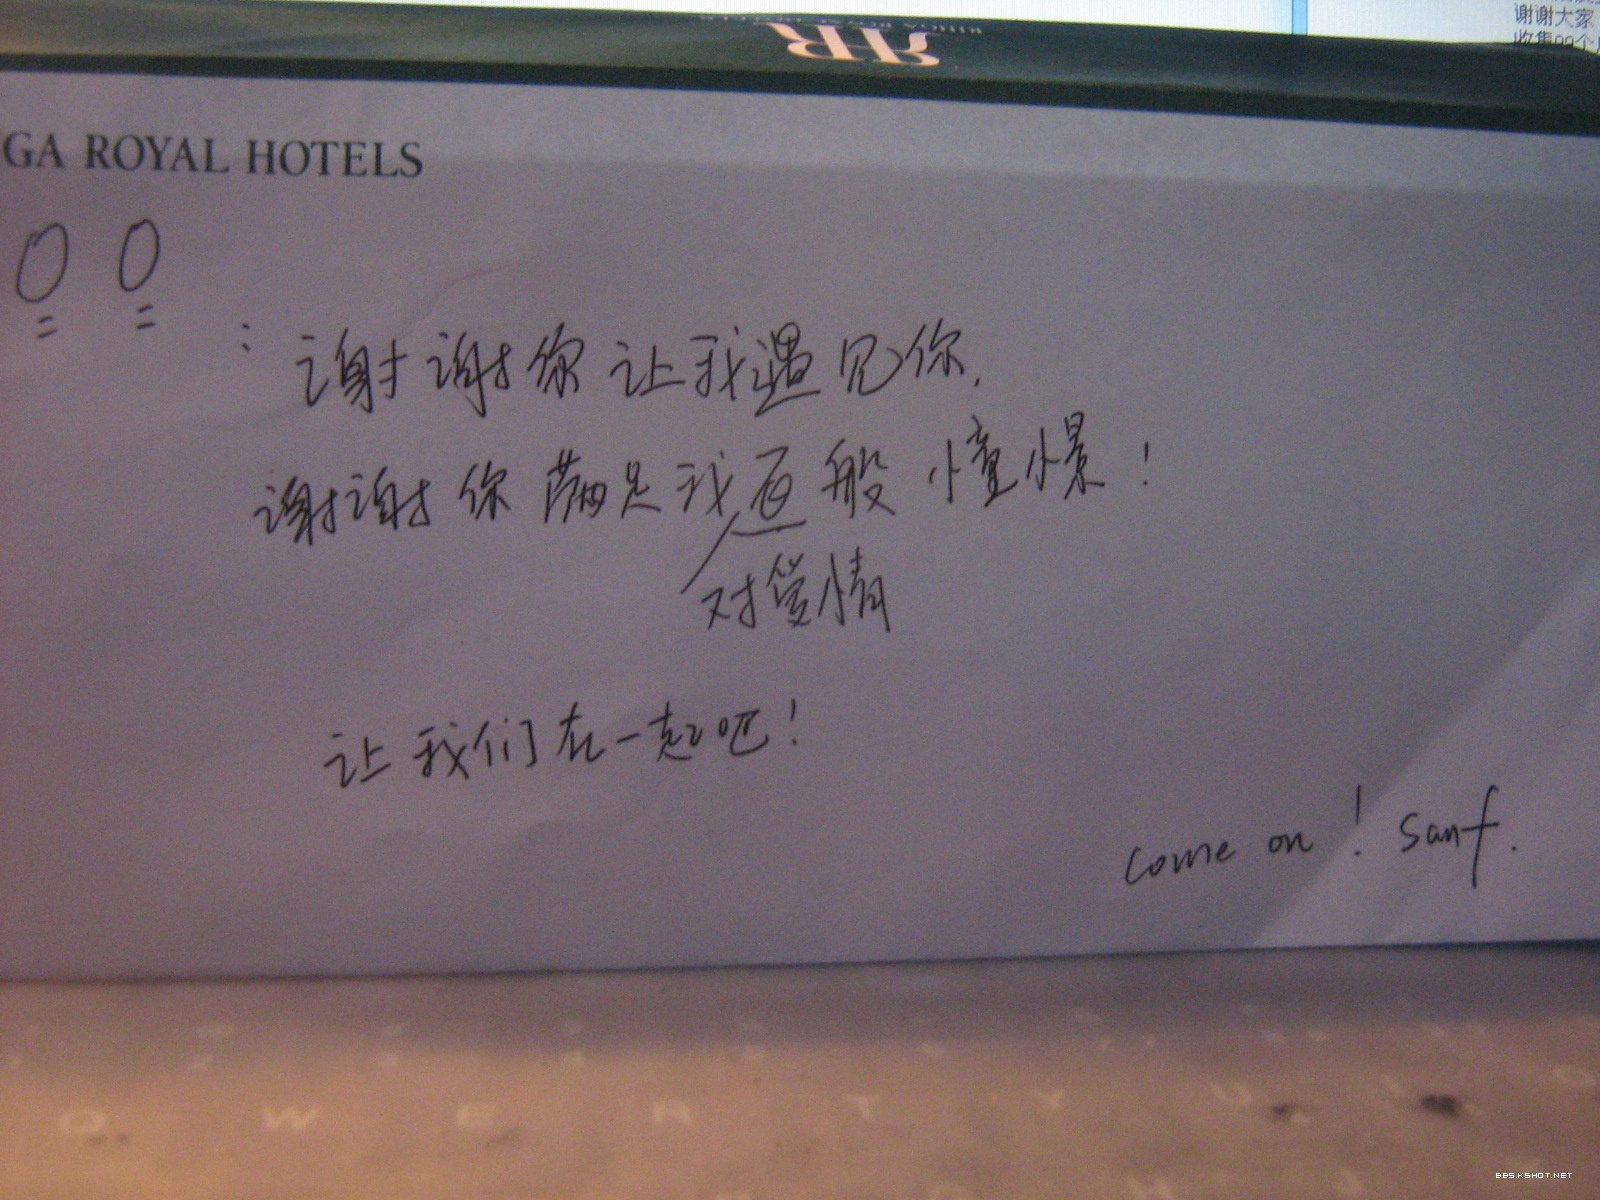 谢谢大家
GA ROYAL HOTELS
00
: 谢谢你让我遇见你.
谢谢你满足我百般憧憬!
对爱情
让我们在一起吧!
come on! sanf.
Q W E R T Y U I O
BBS.KSHOT.NET